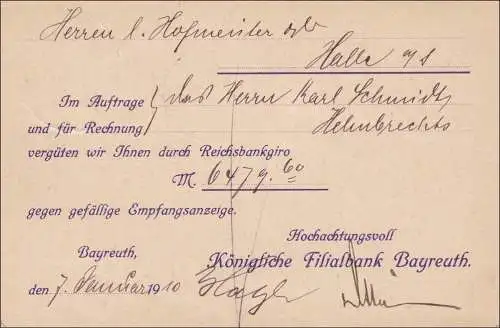 Herren C. Hofmeister
Halle a/S
Im Auftrage des Herrn Karl Schmidt,
und für Rechnung Helmbrechts
vergüten wir Ihnen durch Reichsbankgiro
M. 6479.60
gegen gefällige Empfangsanzeige.
Hochachtungsvoll
Bayreuth, Königliche Filialbank Bayreuth.
den 7. Januar 1910